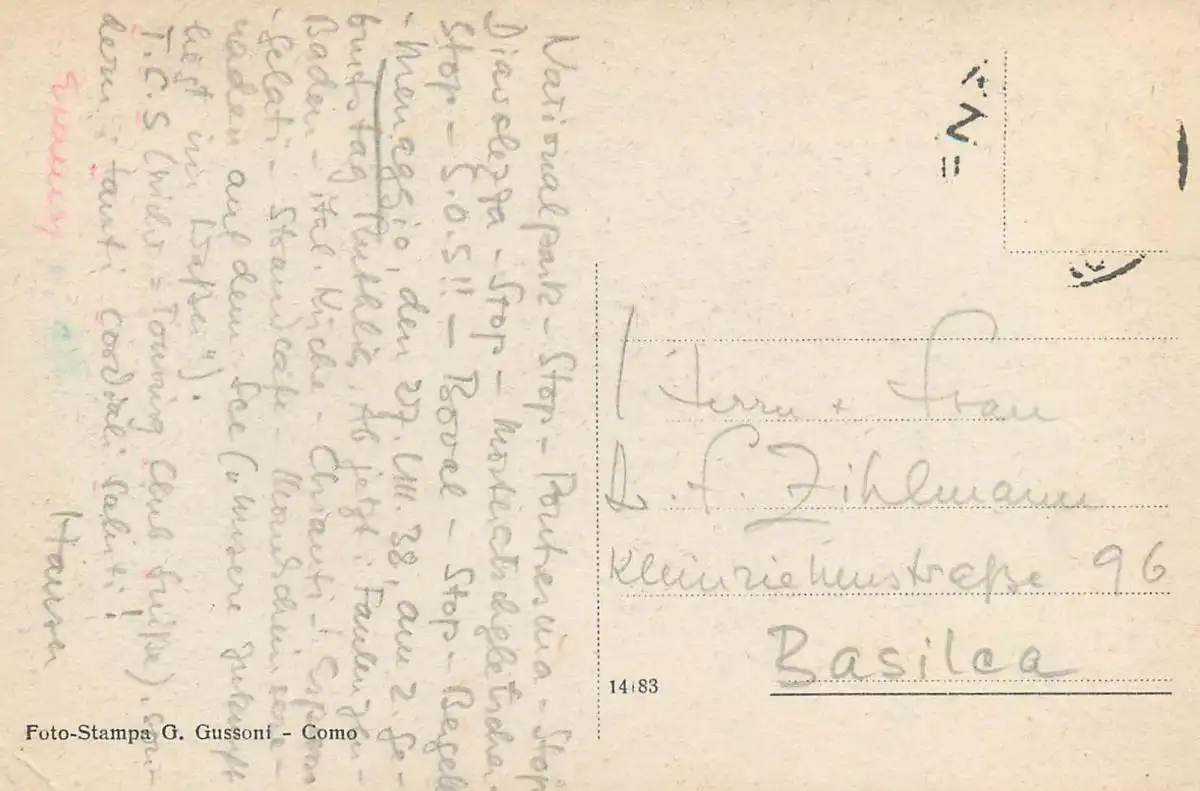 Nationalpark - Stop - Pontresina - Stop
Diavolezza - Stop - Morteratschgletscher
Stop - S.O.S!! - Boval - Stop - Bergell
- Menaggio, den 27. VIII. 38, am 2. Ge-
burtstag Ruthlis. Ab jetzt: Faulenzen -
Baden - ital. Küche - Chianti -! Espresso
- Gelati - Strandcafé - Mondschein
naden auf dem See („Unsere Zukunft
liegt im Waßer“).
T.C.S (nicht = Touring Club Suiße), son-
dern: tanti cordiali saluti!
Hansen
Herrn + Frau
Dr. F. Zihlmann
Kleinriehenstraße 96
Basilea
14183
Foto-Stampa G. Gussoni - Como